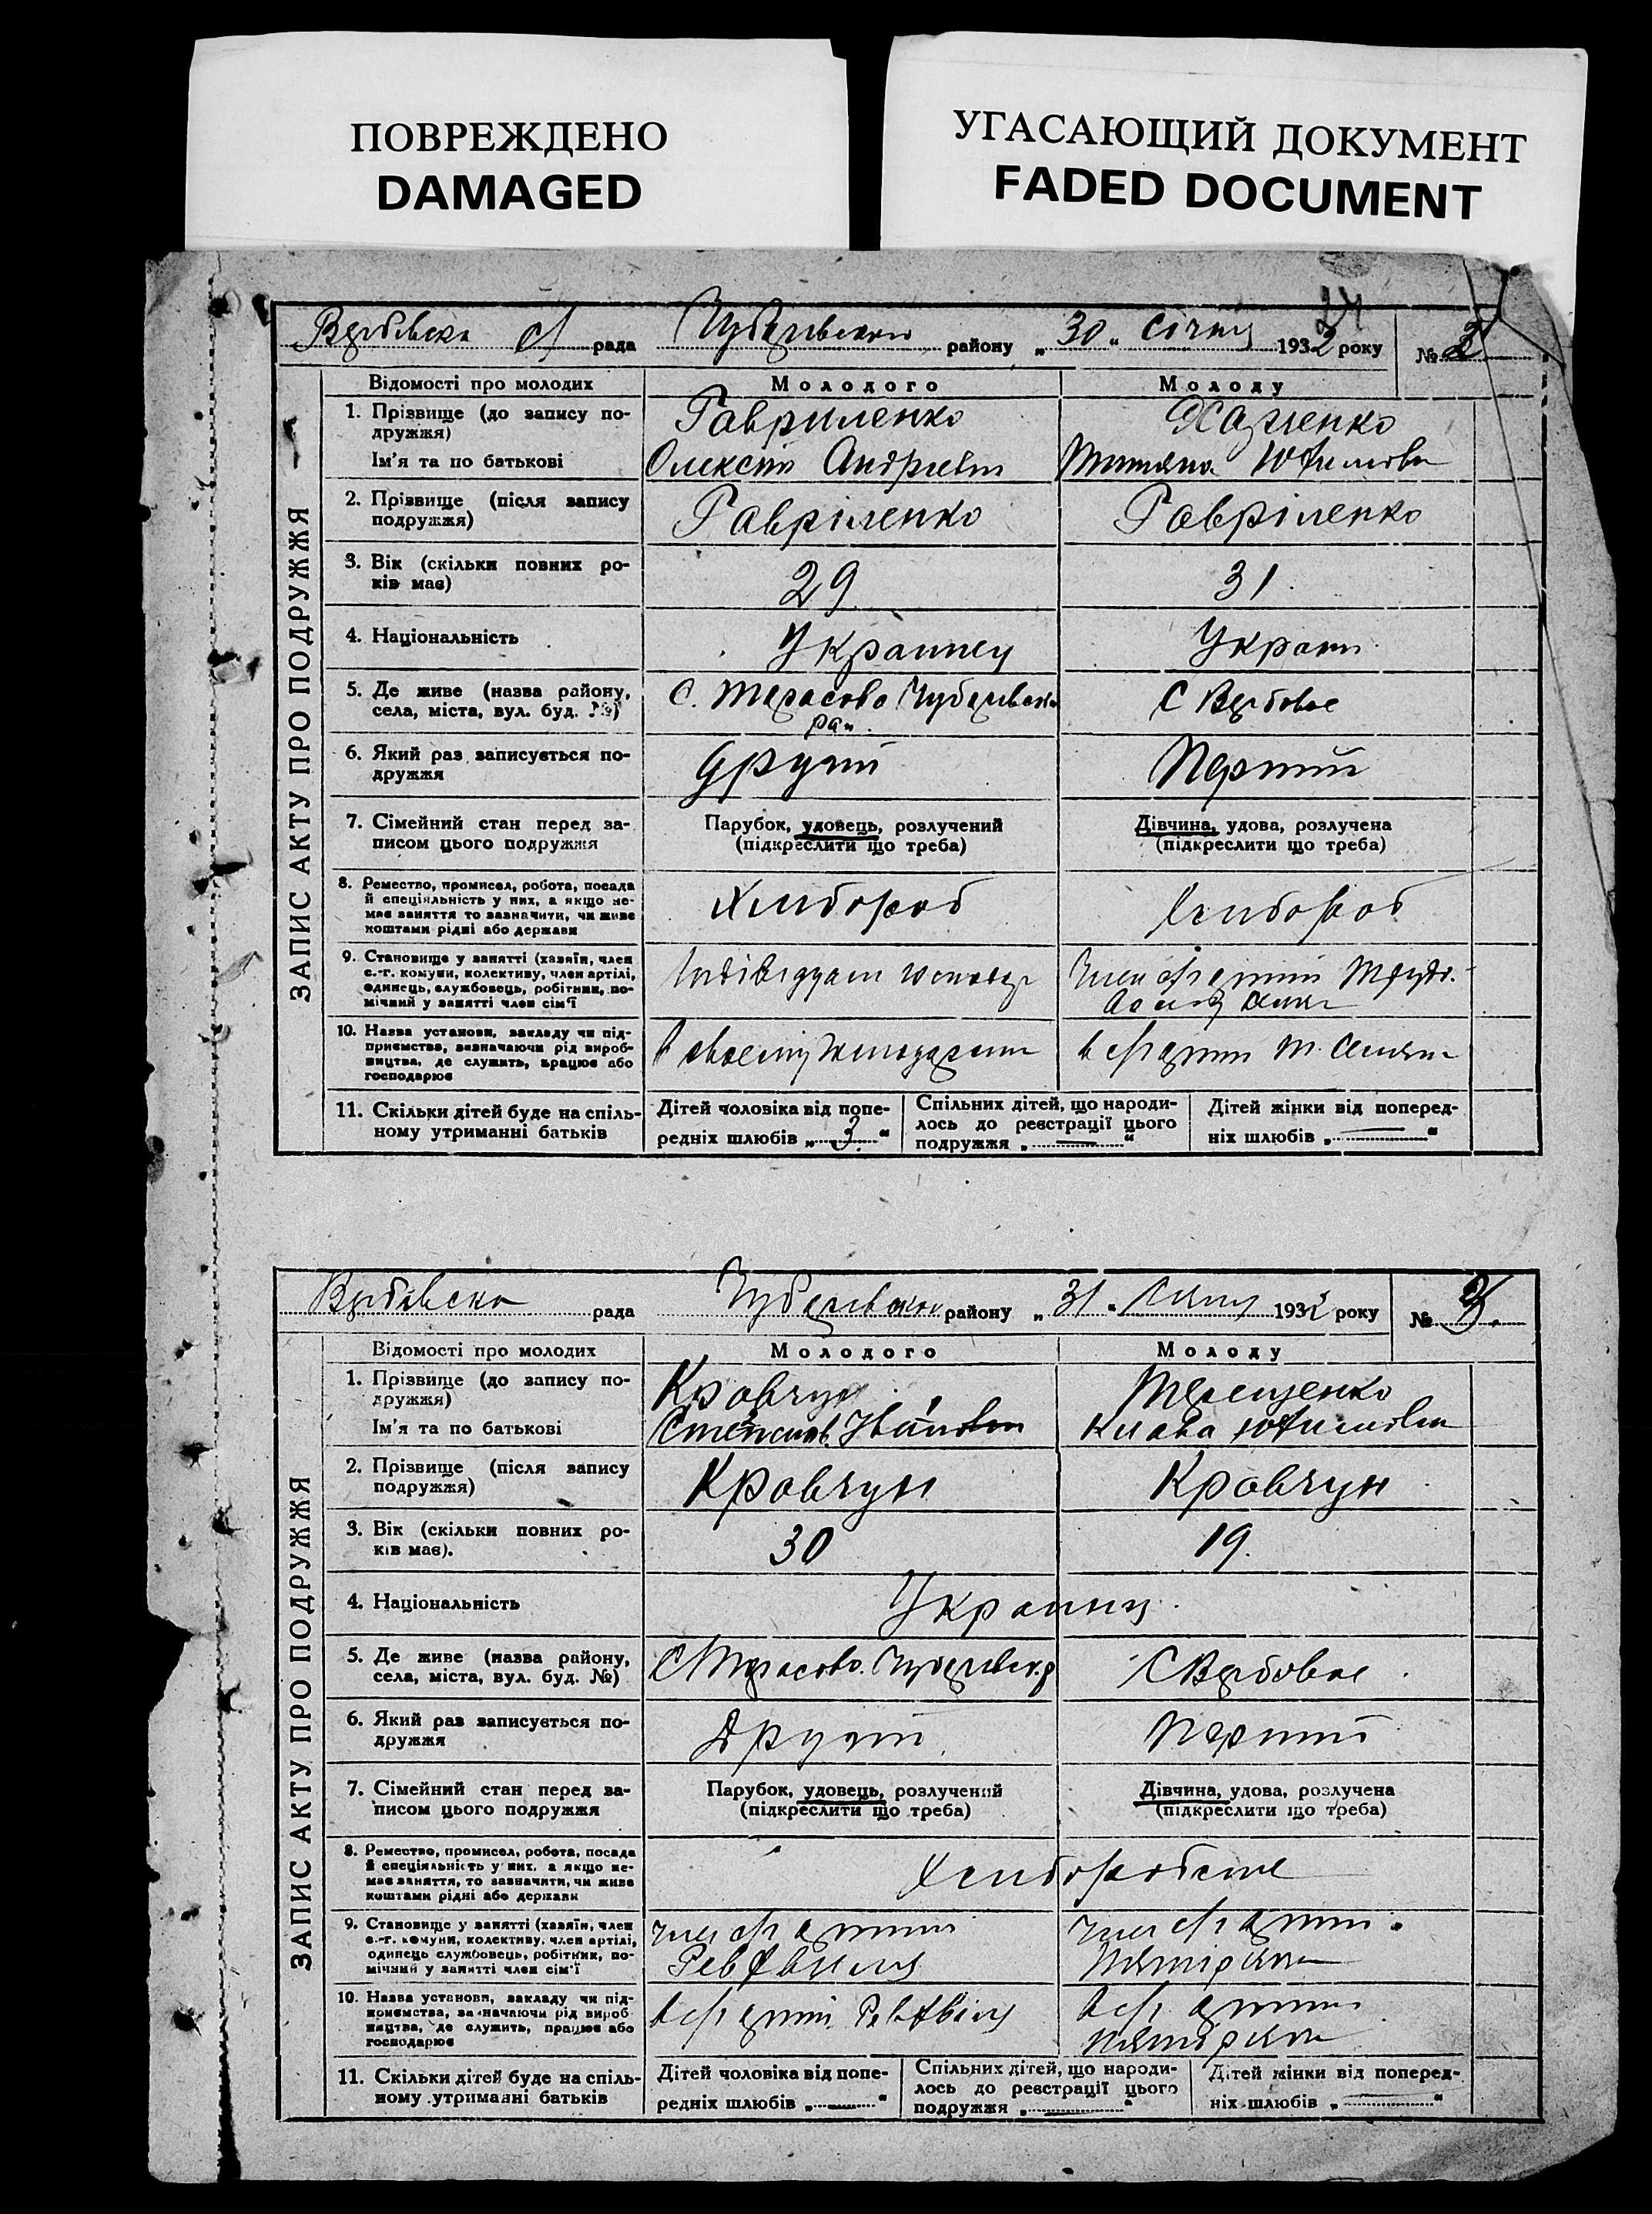 ПОВРЕЖДЕНО
DAMAGED
УГАСАЮЩИЙ ДОКУМЕНТ
FADED DOCUMENT
24
Вербівска с/ рада Чубарівского району „30“ січня 1932 року № 2
ЗАПИС АКТУ ПРО ПОДРУЖЖЯ
Відомості про молодих Молодого Молоду
1. Прізвище (до запису по-
дружжя)
Гавриленко
Ім'я та по батькові
Олексій Андрієвич
Тетяна Юхимовна
2. Прізвище (після запису
подружжя)
Гавріленко Гавріленко
3. Вік (скільки повних ро-
ків має)
29 31.
4. Національність
Украинец Украин
5. Де живе (назва району,
села, міста, вул. буд. №)
С. Терасово Чубарівск
рай.
С Вербове
6. Який раз записується по-
дружжя
Другий Перший
7. Сімейний стан перед за-
писом цього подружжя
Парубок, удовець, розлучений
(підкреслити що треба)
Дівчина, удова, розлучена
(підкреслити що треба)
8. Ремество, промисел, робота, посада
й спеціяльність у них, а якщо не-
має заняття то зазначити, чи живе
коштами рідні або держави
Хлібороб Хлібороб
9. Становище у занятті (хазяїн, член
с.-г. комуни, колективу, член артілі,
одинець, службовець, робітник, по-
мічний у занятті член сім'ї
Член с/г артіли
10. Назва установи, закладу чи під-
приємства, визначаючи рід вироб-
ництва, де служить, працює або
господарює
в своєму
в с/г артіли
11. Скільки дітей буде на спіль-
ному утриманні батьків
Дітей чоловіка від попе-
редніх шлюбів „3“
Спільних дітей, що народи-
лось до реєстрації цього
подружжя „—“
Дітей жінки від поперед-
ніх шлюбів „—“
Вербівска рада Чубарівского району „31“ Січня 1932 року № 3.
ЗАПИС АКТУ ПРО ПОДРУЖЖЯ
Відомості про молодих Молодого Молоду
1. Прізвище (до запису по-
дружжя)
Кравчун Терещенко
Ім'я та по батькові
Степан Іванович
Клава Юхимовна
2. Прізвище (після запису
подружжя)
Кравчун Кравчун
3. Вік (скільки повних ро-
ків має).
30 19.
4. Національність
Украинц
5. Де живе (назва району,
села, міста, вул. буд. №)
С Терасово. Чубарівск. р
С Вербове
6. Який раз записується по-
дружжя
Другий Перший
7. Сімейний стан перед за-
писом цього подружжя
Парубок, удовець, розлучений
(підкреслити що треба)
Дівчина, удова, розлучена
(підкреслити що треба)
8. Ремество, промисел, робота, посада
й спеціяльність у них, а якщо не-
має заняття, то зазначити, чи живе
коштами рідні або держави
9. Становище у занятті (хазяїн, член
с.-г. комуни, колективу, член артілі,
одинець службовець, робітник, по-
мічний у занятті член сім'ї
член с/г артіли
член с/г артіли
10. Назва установи, закладу чи під-
приємства, зазначаючи рід вироб
ництва, де служить, працює або
господарює
в с/г артіли
в с/г артіли
11. Скільки дітей буде на спіль-
ному утриманні батьків
Дітей чоловіка від попе-
редніх шлюбів „—“
Спільних дітей, що народи-
лось до реєстрації цього
подружжя „—“
Дітей жінки від поперед-
ніх шлюбів „—“